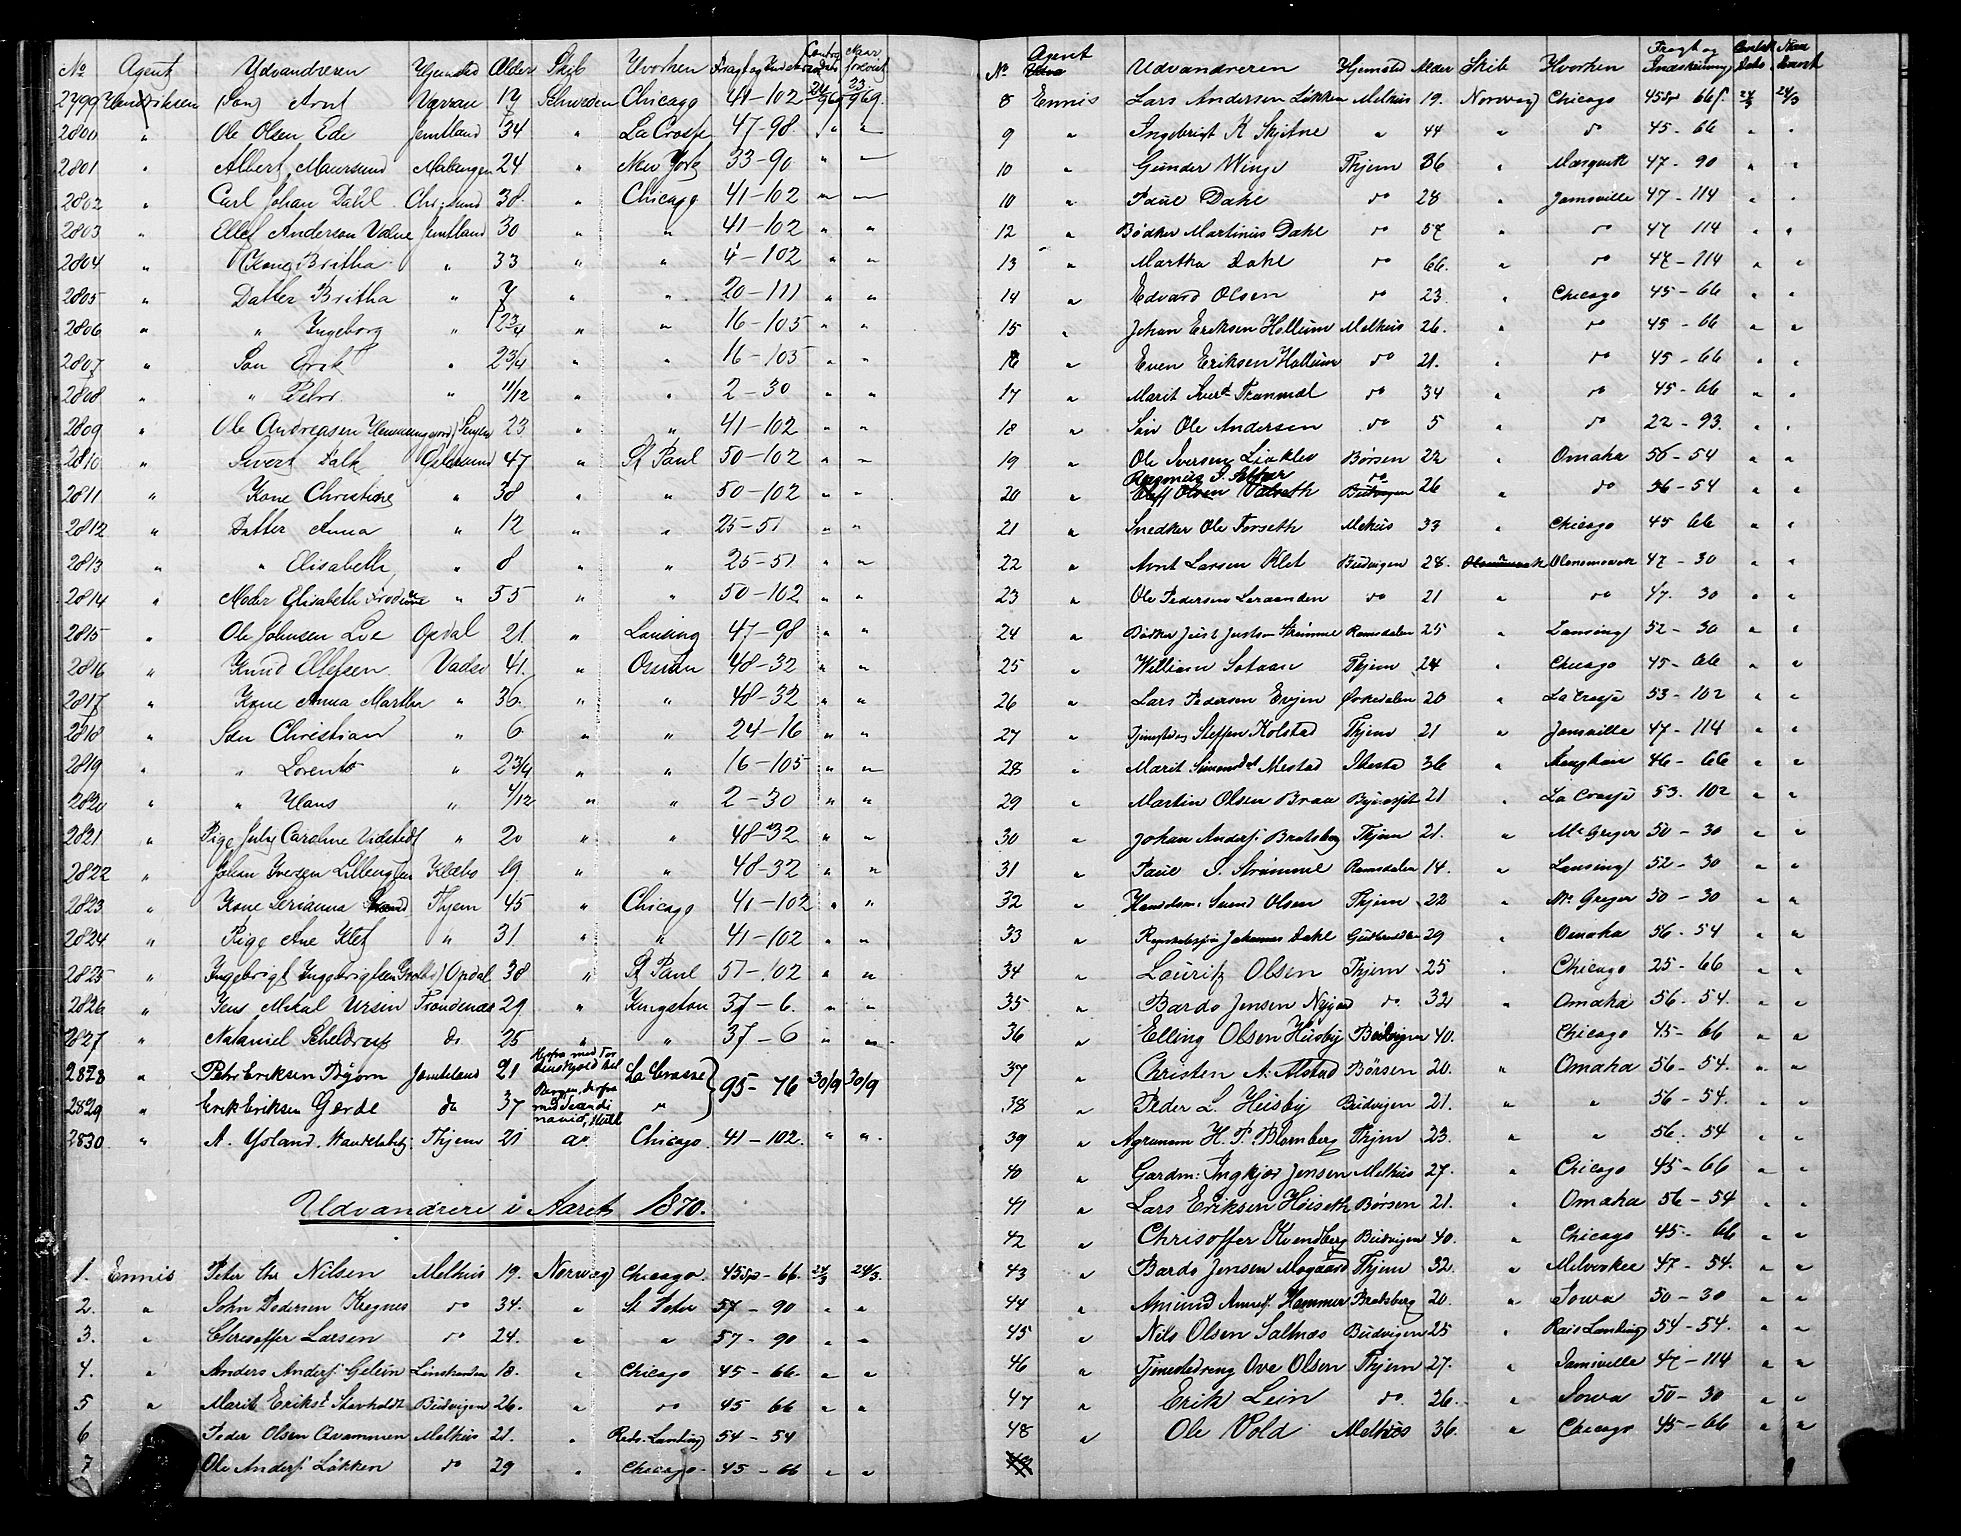 No Agent Udvandreren Hjemsted Alder Skib Hvorhen Fragt og
2799 Hendriksen (Søn) Arnt Værran 17 Schweden Chicago 41-102
2800 " Ole Olsen Ede Jemtland 34 " La Crosse 47-98 " "
2801 " Albert Maursund 24 " New York 33-90 " "
2802 " Carl Johan Dahl Chr:sund 38. " Chicago 41-102 " "
2803 " Ellef Anderson Jemtland 30 " " 41-102 " "
2804 " Kone Britha " 33 " " 4-102 " "
2805 " Datter Britha " 7 " " 20-111 " "
2806 " " Ingeborg " " " 16-105 " "
2807 " Søn " 2 3/4 " " 16-105 " "
2808 " " Peder " 11/12 " " 2-30 " "
2809 " Ole Andreasen 23 " " 41-102 " "
2810 " Sivert Dalk 47 " St Paul 50-102 " "
2811 " Kone Christine " 38 " " 50-102 " "
2812 " Datter Anna " 12 " " 25-51 " "
2813 " " Elisabeth " 8 " " 25-51 " "
2814 " Moder Elisabeth " 55 " " 50-102 " "
2815 " Ole Johnsen Loe Opdal 21 " Lansing 47-98 " "
2816 " Knud Ellefsen Vadsø 41. " 48-32 " "
2817 " Kone Anna Martha " 36. " " 48-32 " "
2818 " Søn Christian " 6 " " 24-16 " "
2819 " " Lorents " 2 3/4 " " 16-105 " "
2820 " " Hans " 4/12 " " 2-30 " "
2821 " Pige July Caroline Vidstedt " 20 " " 48-32 " "
2822 " Johan Iversen Klæbo 19 " " 48-32 " "
2823 " Kone Serianna Thjem 45 " Chicago 41-102 " "
2824 " Pige Ane Klet " 31 " " 41-102 " "
2825 " Ingebrigt Ingebrigtsen Opdal 38 " St Paul 51-102 " "
2826 " Jens Mekal Ursin Trondenæs 29 " Kingston 37-6. " "
2827 " Nataniel Scheldrup do 25 " " 37-6 " "
2828 " Petr Eriksen Bjørn Jemteland 21 La Crosse 95-76 30/9 30/9
2829 " Erik Eriksen Gerde do 37 "
2830 " A. Ysland. Thjem 21 do Chicago 41-102. " "
Udvandrere i Aaret 1870.
1. Ennis Peter Chr Nilsen Melhus 19. Norway Chicago. 45 Sp-66. 24/3 24/3.
2. " John Pedersen Kregnes do 34. " St Peter 57-90 " "
3. " Christoffer Larsen do 24. " " 57-90 " "
4. " Anders Anders. 18. " Chicago 45-66. " "
5 " Marit Eriksd. Stavholdt Budvigen 26. " do 45 66 " "
6 Peder Olsen Qvammen Melhus 21. " Reds-Landing 54-54
7 Ole Anders. Løkken do 29 " Chicago 45-66 " "
No Agent Udvandreren Hjemsted Alder Skib Hvorhen Fragt og Indskrivning
8 Ennis Lars Andersen Løkken Melhus 19. Norway Chicago 45 Sp 66 s. 24/3 24/3
9 " Ingebrigt K Skjetne " 44 " do 45-66 " "
10 " Gunder Winge Thjem 36 " Marquett 47-90 " "
10 " Paul Dahl do 28 " Jamsville 47-114 " "
12 " Bødker Martinus Dahl do 57 " do 47 114 " "
13 " Martha Dahl do 66. " do 47-114 " "
14 " Edvard Olsen do 23. " Chicago 45-66 " "
15 " Johan Eriksen Hollum Melhus 26. " do 45-66 " "
16 " Even Eriksen Hollum do 21. " do 45-66 " "
17 " Marit Tranmæl do 34 " do 45-66 " "
18 " Søn Ole Andersen do 5 " do 22-93. " "
19 " Ole Iversen Liaklev Børsen 22 " Omaha 56-54 " "
20 " do 26 " do 56-54 " "
21 " Snedker Ole Forseth Melhus 33 " Chicago 45 66 " "
22 " Arnt Larsen Klet Budvigen 28. 47-30 " "
23 " Ole Pedersen do 21 " do 47. 30 " "
24 " Bødker Strømme Romsdalen 25 " Lansing 52-30 " "
25 " William Thjem 24 " Chicago 45-66 " "
26 " Lars Pedersen Evjen Orkedalen 20 " La Crosse 53-102 " "
27 " Steffen Kolstad Thjem 21 " Jamsville 47-114 " "
28 " Marit Simonsd. Mestad 36 " 46-66 " "
29 " Martin Olsen Braa 21 " La Crosse 53. 102 " "
30 " Johan Anders. Bratsberg Thjem 21. " Mc Greger 50-30 " "
31 " Paul S. Strømme Romsdalen 14. " Lansing 52-30 " "
32 " Svend Olsen Thjem 22 " Mc Greger 50-30 " "
33 " Johannes Dahl 29 " Omaha 56-54 " "
34 " Lauritz Olsen Thjem 25 " Chicago 25-66 " "
35 " Bardo Jensen do 32 " Omaha 56-54 " "
36 " Elling Olsen Husby Budvigen 40. Chicago 45-66 " "
37 " Christen A. Alstad Børsen 20. " Omaha 56-54. " "
38 " Peder L. Heisby Budvigen 21. " " 56-54. " "
39 " Agronom H. P. Blomberg Thjem 23. " " 56. 54 " "
40 " Gardm: Ingkjør Jensen Melhus 27. " Chicago 45-66 " "
41 " Lars Eriksen Høiseth Børsen 21. " Omaha 56-54 " "
42 " Chrisoffer Kvendberg Budvigen 40. " Chicago 45-66 " "
43 " Bardo Jensen Mogaard Thjem 32. " Milvookee 47-54. " "
44 " Amund Hammer Bratsberg 20. " Iowa 50-30 " "
45 " Nils Olsen Saltnæs Budvigen 25 " Rais Landing 54-54. " "
46 " Tjenestedreng Ove Olsen Thjem 27. " Jamsville 47-114 " "
47 " Erik Lein do. 26. " Iowa 50-30 " "
48 " Ole Vold Melhus 36. " Chicago 45-66 " "